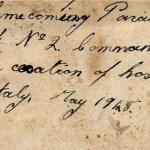 omecoming Para
l No 2 Comman
cessation of hos
taly, May 1945.